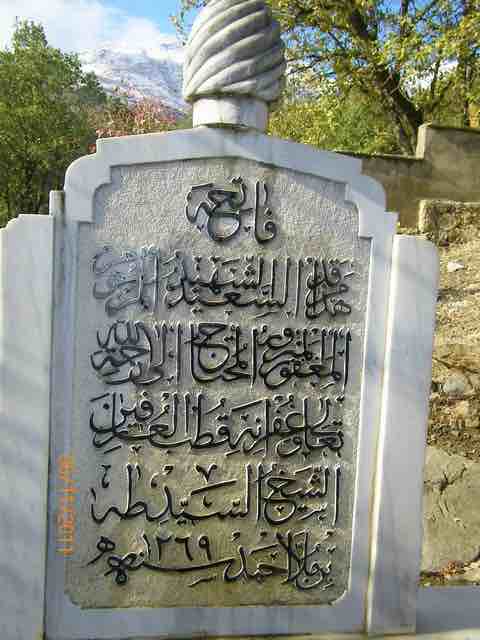 فاتحة
هذا مرقد السعيد الشهيد المرحوم
المغفور المحتاج الى رحمة الله
تعالى وغفرانه قطب العارفين
الشيخ السيد طه
بن ملا احمد سنه ١٢٦٩ هـ
06/11/2011